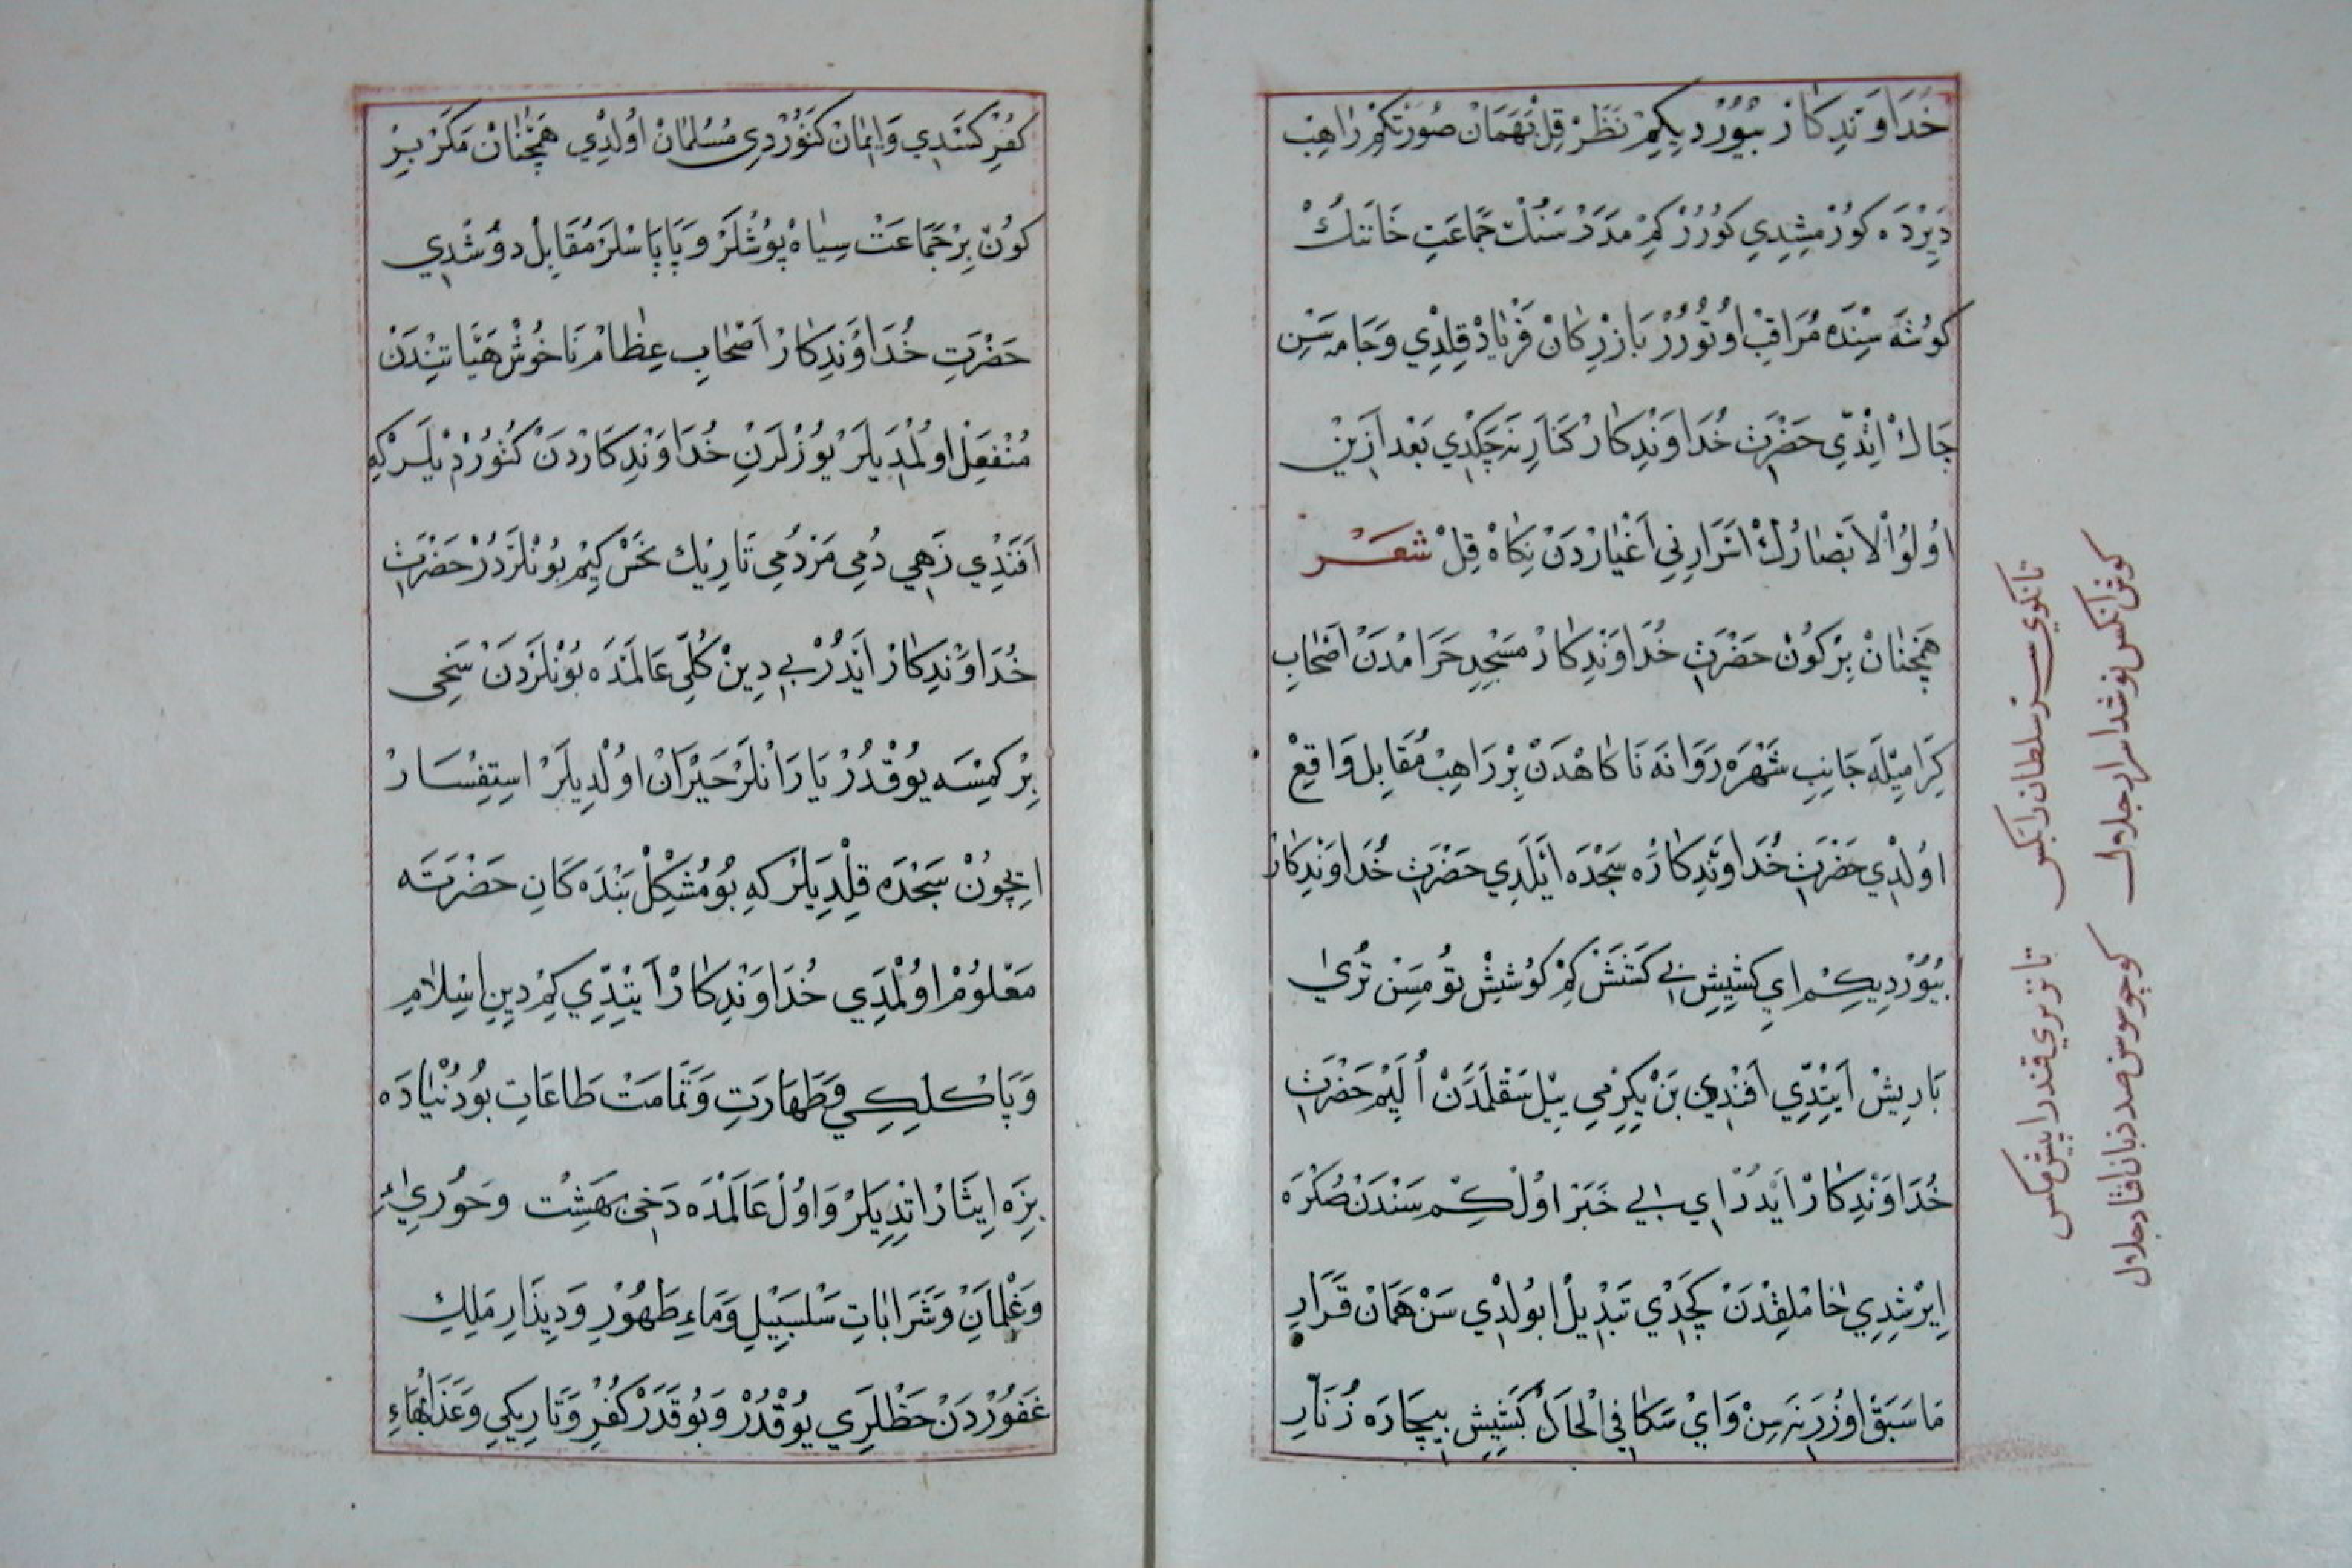 خُدَاوَنْدِكَارْ بُيُورْدِيكِمْ نَظَرْ قِلْ هَمَانْ صُورَتكِمْ رَاهِبْ
دَيِرْدَه كُورْمِشِدِي كُورُرْ كِمْ مَدَدْ سَنُكْ جَمَاعَتِ خَانَنكْ
كُوشَه سِنْدَه مُرَاقِبْ اُوتُورُرْ بَازِرْكَانْ فَرْيَادْ قِلِدِي وَجَامَه سَنِ
چَاكْ اِتْدِّي حَضْرَتِ خُدَاوَنْدِكَارْ كَنَارِنَه چَكْدِي بَعْدَ ازِينْ
اُولُوا الْاَبْصَارُكْ اسْرَارِنِي اَغْيَارْدَنْ نِكَاهْ قِلْ شعر
هَمْچنَانْ بِرْكُونْ حَضْرَتِ خُدَاوَنْدِكَارْ مَسْجِدِ حَرَامْدَنْ اَصْحَابِ
كِرَامِيلَه جَانِبِ شَهْرَه رَوَانَه نَاكَاهْدَنْ بِرْ رَاهِبْ مُقَابِل وَاقِعْ
اوُلدِي حَضْرَتِ خُدَاوَنْدِكَارَه سَجْدَه ايْلَدِي حَضْرَتِ خُدَاوَنْدِكَارْ
بُيُورْدِيكِمْ اي كَشِيشِ بِي كَشَشْ كِمْ كُوشِشْ تُومِسَنْ تُرَيْ
بَارِيشْ اَيِتْدِّي اَفَنْدِي بَنْ يِكِرْمِي يِيل سَقْلَمَدَنْ اُلَيِمْ حَضْرَتِ
خُدَاوَنْدِكَارْ اَيْدُرْ اي بِي خَبَرْ اوُلْ كِمْ سَنْدَنْ صُكْرَه
اِيرْشِدِي خَامْلِقْدَنْ كَچَدِي تَبْدِيلْ بُولْدِي سَنْ هَمَانْ قَرَارِ
مَا سَبَقْ اوُزَرِنَه سِنْ وَايْ سَكَا فِي الْحَالْ كَشِيشِ بِيچَارَه زُنَّارِ
تانكوي سر سلطان رابركس
تانريزي قند را پيش مكس
كوش انكس نوشد اسرار جلال
كوچو سوسن صد زبان افتاد ولال
كُفْرِ كَسَدِي وَاِيمَانْ كَتُورْدِي مُسُلمَانْ اُولْدِي هَمْچنَانْ مَكَرْ بِرْ
كُونْ بِرْجَمَاعَتْ سِيَاهْ پُوشْلَرْ وَ پَاپَاسْلَرْ مُقَابِلْ دُوشْدِي
حَضْرَتِ خُدَاوَنْدِكَارْ اَصْحَابِ عِظَامْ نَاخُوشْ هَيَّاتِنْدَنْ
مُنْفَعِلْ اوُلْمَدِيلَرْ يُوزْلَرَنِ خُدَاوَنْدِكَارْدَنْ كَتُورْدِيلَرْ كِه
اَفَنْدِي زَهِي دُمِي مَرْدُمِي تَارِيكْ نَحْس كِيمْ بُونْلَرْدُرْ حَضْرَتِ
خُدَاوَنْدِكَارْ اَيْدُرْ بِي دِينْ كُلّي عَالَمْدَه بُونْلَرْدَنْ سَخِي
بِرْ كِمْسَه يُوقْدُرْ يَارَانْلَرْ حَيْرَانْ اوُلْدِيلَرْ اسْتِفْسَارْ
اِچُونْ سَجْدَه قِلْدِيلَرْ كِه بُو مُشْكِلْ بَنْدَه كَانِ حَضْرَتَه
مَعْلُومْ اوُلْمَدِي خُدَاوَنْدِكَارْ اَيِتْدِّي كِمْ دِينِ اِسْلَامِ
وَ پَاكْلِكِي وَطَهَارَتِ وَتَمَامَتْ طَاعَاتِ بُو دُنْيَادَه
بِزَه اِيثَارْ اتْدِيلَرْ وَاوُلْ عَالَمْدَه دَخِي بَهَشِتْ وَحُورِيءِ
وَغْلِمَانْ وَشَرَابَاتِ سَلْسَبِيلِ وَمَاءِ طَهُورْ وَدِيدَارِ مَلِكِ
غَفُورْدَنْ حَظْلَرِي يُوقْدُرْ وَبُوقَدَرْ كُفْرْ وَتَارِيكِي وَعَذَابْهَاءِ